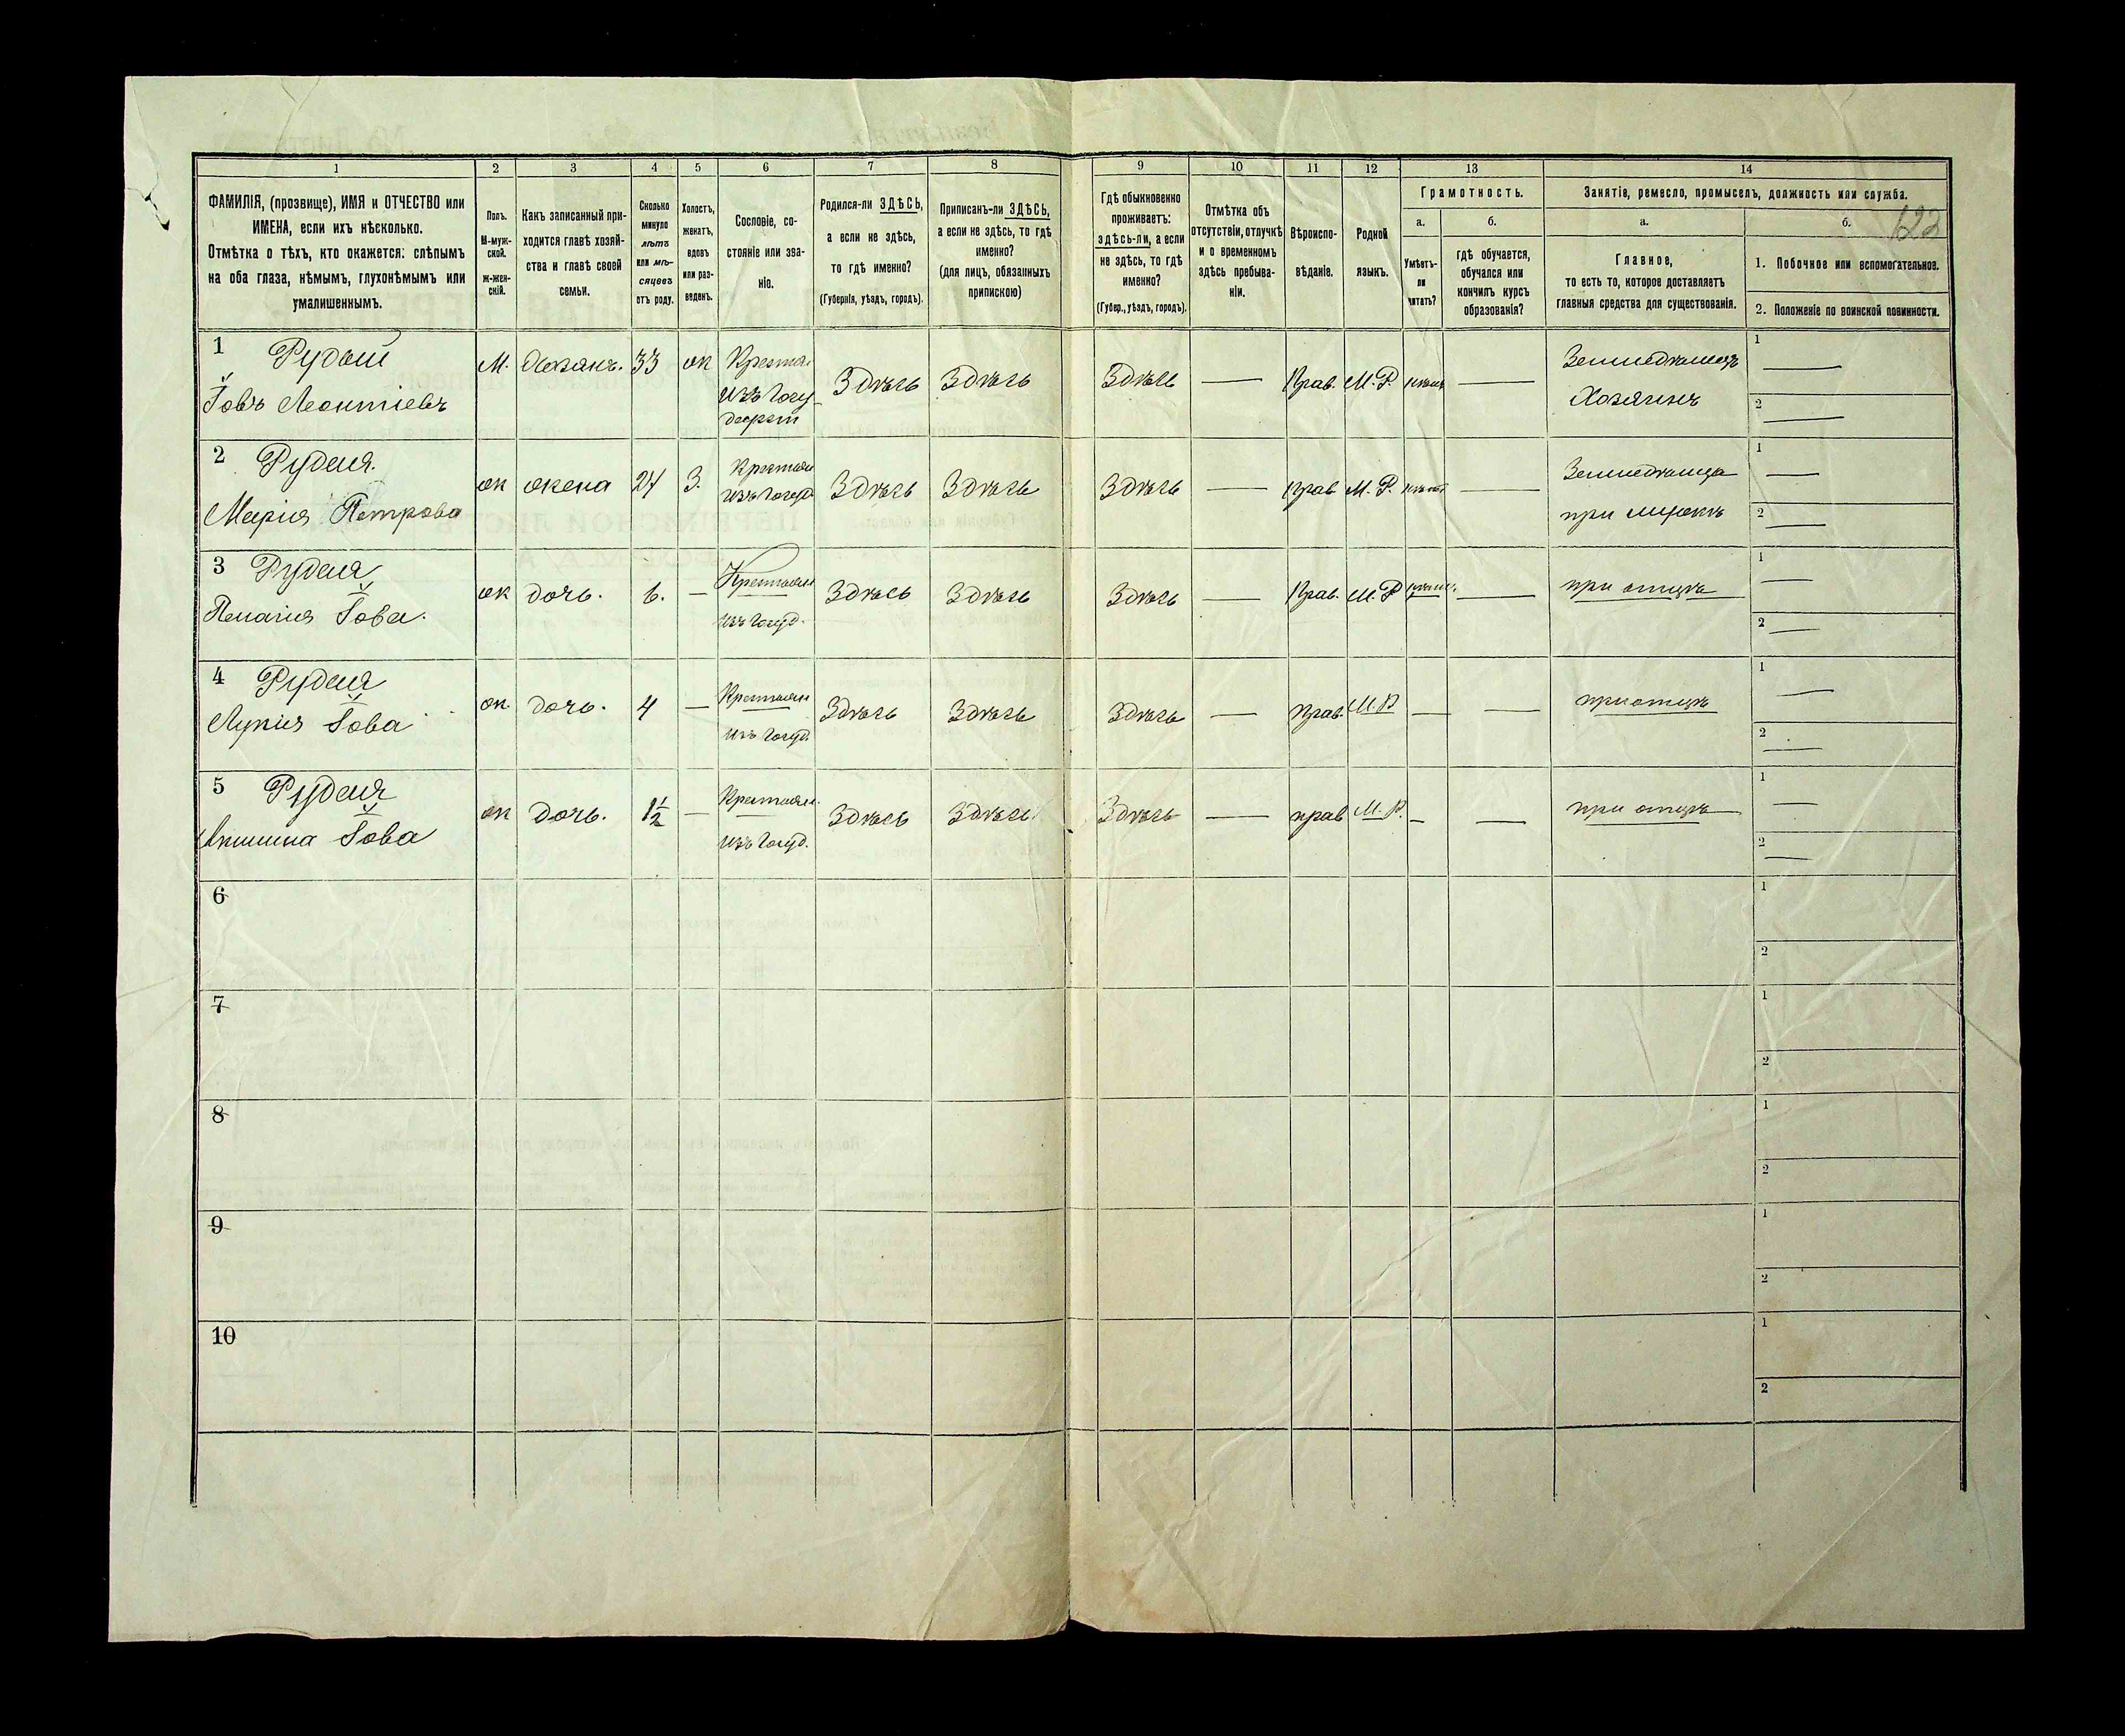 1
2
3
4
5
6
7
8
9
10
11
12
13
14
ФАМИЛІЯ, (прозвище), ИМЯ и ОТЧЕСТВО или
ИМЕНА, если ихъ нѣсколько.
Отмѣтка о тѣхъ, кто окажется: слѣпымъ
на оба глаза, нѣмымъ, глухонѣмымъ или
умалишеннымъ.
Полъ.
М-муж-
ской.
ж-жен-
скій.
Какъ записанный при-
ходится главѣ хозяй-
ства и главѣ своей
семьи.
Сколько
минуло
лѣтъ
или мѣ-
сяцевъ
отъ роду.
Холостъ,
женатъ,
вдовъ
или раз-
веденъ.
Сословіе, со-
стояніе или зва-
ніе.
Родился-ли ЗДѢСЬ,
а если не здѣсь,
то гдѣ именно?
(Губернія, уѣздъ, городъ).
Приписанъ-ли ЗДѢСЬ,
а если не здѣсь, то гдѣ
именно?
(для лицъ, обязанныхъ
припискою)
Гдѣ обыкновенно
проживаетъ:
здѣсь-ли, а если
не здѣсь, то гдѣ
именно?
(Губер., уѣздъ, городъ).
Отмѣтка объ
отсутствіи, отлучкѣ
и о временномъ
здѣсь пребыва-
ніи.
Вѣроиспо-
вѣданіе.
Родной
языкъ.
Грамотность.
а.
Умѣетъ-
ли
читать?
б.
гдѣ обучается,
обучался или
кончилъ курсъ
образованія?
Занятіе, ремесло, промыселъ, должность или служба.
а.
Главное,
то есть то, которое доставляетъ
главныя средства для существованія.
б.
1. Побочное или вспомогательное.
2. Положеніе по воинской повинности.
1 Рудый
Іовъ Леонтіевъ
М. Хозяинъ. 33 ж
Крестья
изъ Госу
дарст
Здѣсь Здѣсь Здѣсь — Прав. М. Р. —
Земледѣлецъ
Хозяинъ
1 —
2 —
2 Рудая.
Марія Петрова
ж жена 24 З.
Крестьян
изъ Госуд
Здѣсь Здѣсь Здѣсь — прав М. Р. —
Земледѣлица
при мужѣ
1 —
2 —
3 Рудая
Пелагія Іова.
ж дочь. 6. —
Крестьян
изъ Госуд.
Здѣсь Здѣсь Здѣсь — Прав. М. Р —
при отцѣ
1 —
2 —
4 Рудая
Лукія Іова
ж. дочь. 4 —
Крестьян
изъ Госуд.
Здѣсь Здѣсь Здѣсь — Прав. М. Р — —
при отцѣ
1 —
2 —
5 Рудая
Іова
ж дочь. 1½ —
Крестьян.
изъ Госуд.
Здѣсь Здѣсь Здѣсь — прав М. Р. — —
при отцѣ
1 —
2 —
6
1
2
7
1
2
8
1
2
9
1
2
10
1
2